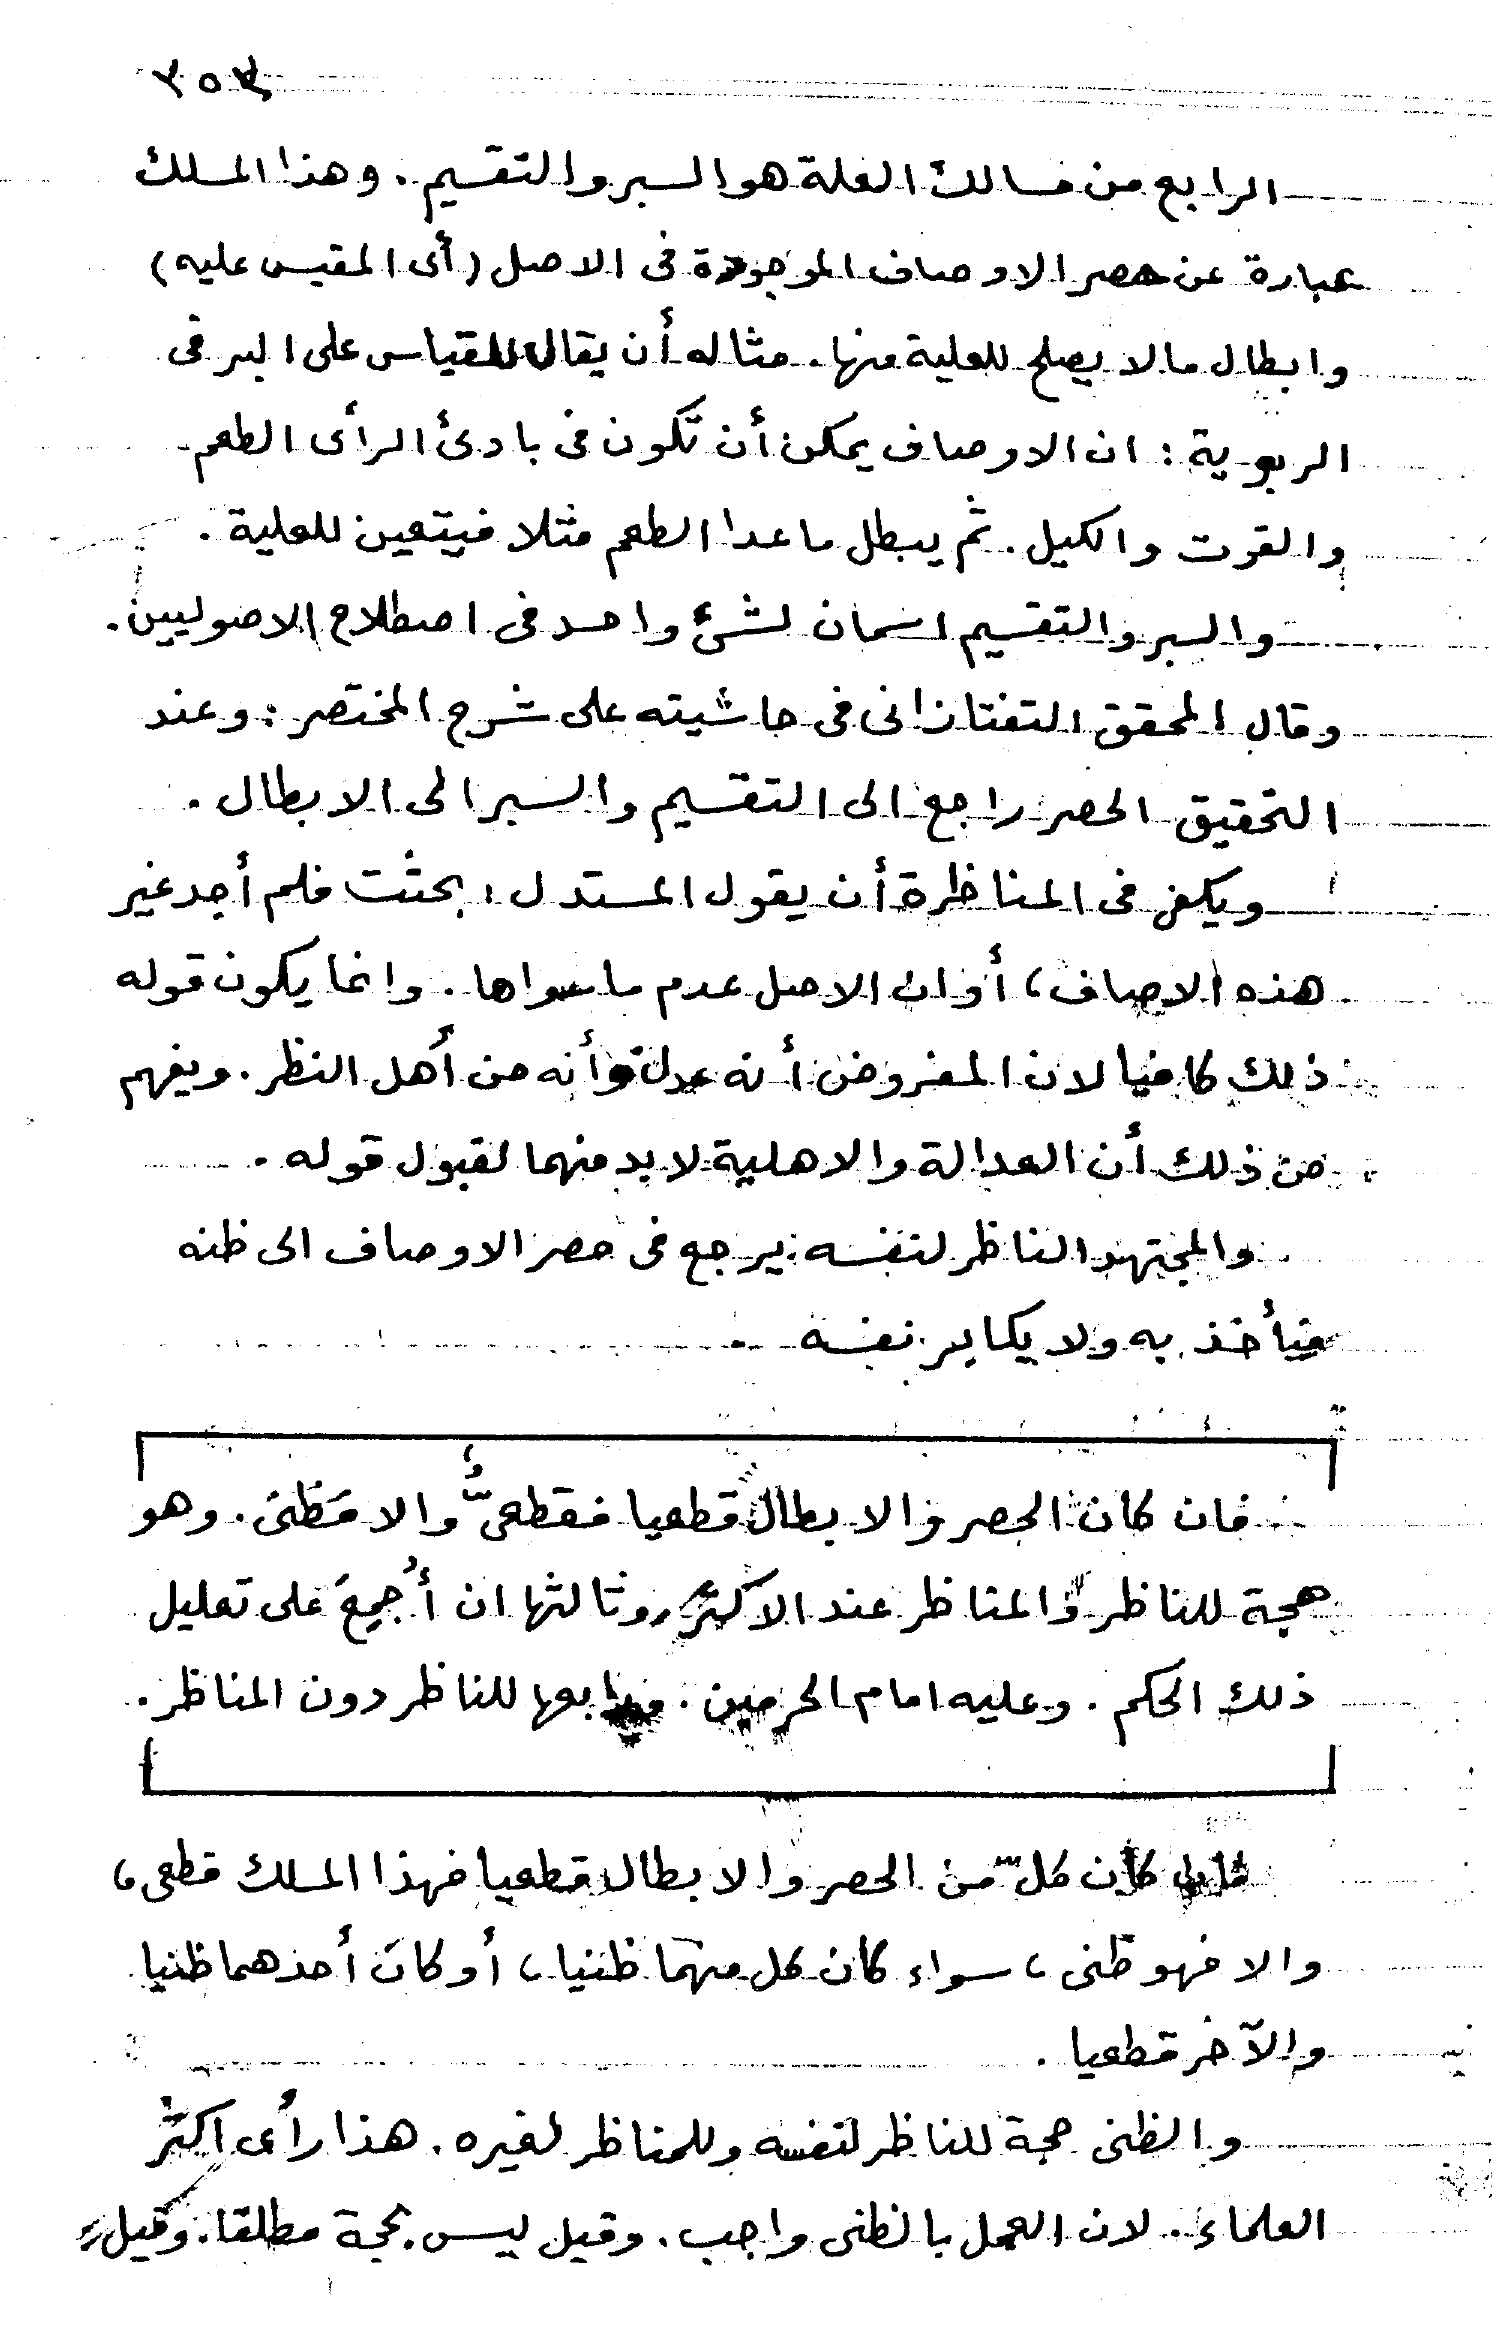 ٣٥٢
الرابع من مسالك العلة هو السبر والتقسيم. وهذا المسلك
عبارة عن حصر الاوصاف الموجودة فى الاصل (أى المقيس عليه)
وابطال ما لا يصلح للعلية منها. مثاله أن يقال للقياس على البر فى
الربوية: ان الاوصاف يمكن أن تكون فى بادئ الرأى الطعم
والقوت والكيل. ثم يبطل ما عدا الطعم مثلا فيتعين للعلية.
والسبر والتقسيم اسمان لشئ واحد فى اصطلاح الاصوليين.
وقال المحقق التفتازانى فى حاشيته على شرح المختصر: وعند
التحقيق الحصر راجع الى التقسيم والسبر الى الابطال.
ويكفى فى المناظرة أن يقول المستدل: بحثت فلم أجد غير
هذه الاصاف، أو ان الاصل عدم ما سواها. وانما يكون قوله
ذلك كافيا لان المفروض أنه عدل وأنه من أهل النظر. ويفهم
من ذلك أن العدالة والاهلية لا بد منهما لقبول قوله.
والمجتهد الناظر لنفسه: يرجع فى حصر الاوصاف الى ظنه
فيأخذ به ولا يكابر نفسه.
فان كان الحصر والابطال قطعيا فقطعىّ والا فظنى. وهو
حجة للناظر والمناظر عند الاكثر، وثالثها ان أُجمِعَ على تعليل
ذلك الحكم. وعليه امام الحرمين. ورابعها للناظر دون المناظر.
كان كلّ من الحصر والابطال قطعيا فهذا المسلك قطعى،
والا فهو ظنى، سواء كان كل منهما ظنيا، أو كان أحدهما ظنيا
والآخر قطعيا.
والظنى حجة للناظر لنفسه وللمناظر لغيره. هذا رأى اكثر
العلماء. لان العمل بالظنى واجب. وقيل ليس بحجة مطلقا. وقيل